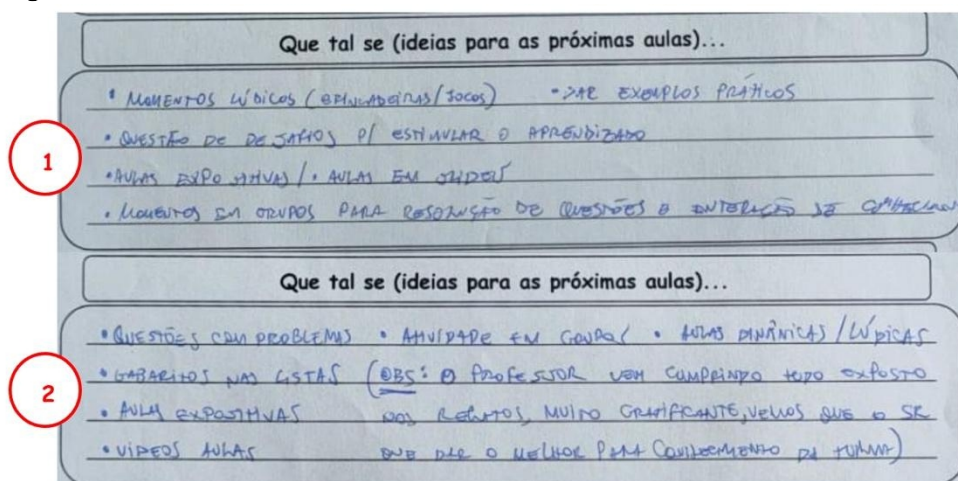 Que tal se (ideias para as próximas aulas)...
• MOMENTOS LÚDICOS (BRINCADEIRAS/JOGOS) • DAR EXEMPLOS PRÁTICOS
• QUESTÃO DE DESAFIOS P/ ESTIMULAR O APRENDIZADO
1
• AULAS EXPOSITIVAS / • AULAS EM SLIDES
• MOMENTOS EM GRUPOS PARA RESOLUÇÃO DE QUESTÕES E INTERAÇÃO DE
Que tal se (ideias para as próximas aulas)...
• QUESTÕES COM PROBLEMAS • ATIVIDADE EM GRUPOS • AULAS DINÂMICAS / LÚDICAS
• GABARITOS NAS LISTAS (OBS: O PROFESSOR VEM CUMPRINDO TUDO EXPOSTO
2
• AULAS EXPOSITIVAS NOS RELATOS, MUITO GRATIFICANTE, VEMOS QUE O SR
• VIDEOS AULAS QUE DAR O MELHOR PARA CONHECIMENTO DA TURMA)